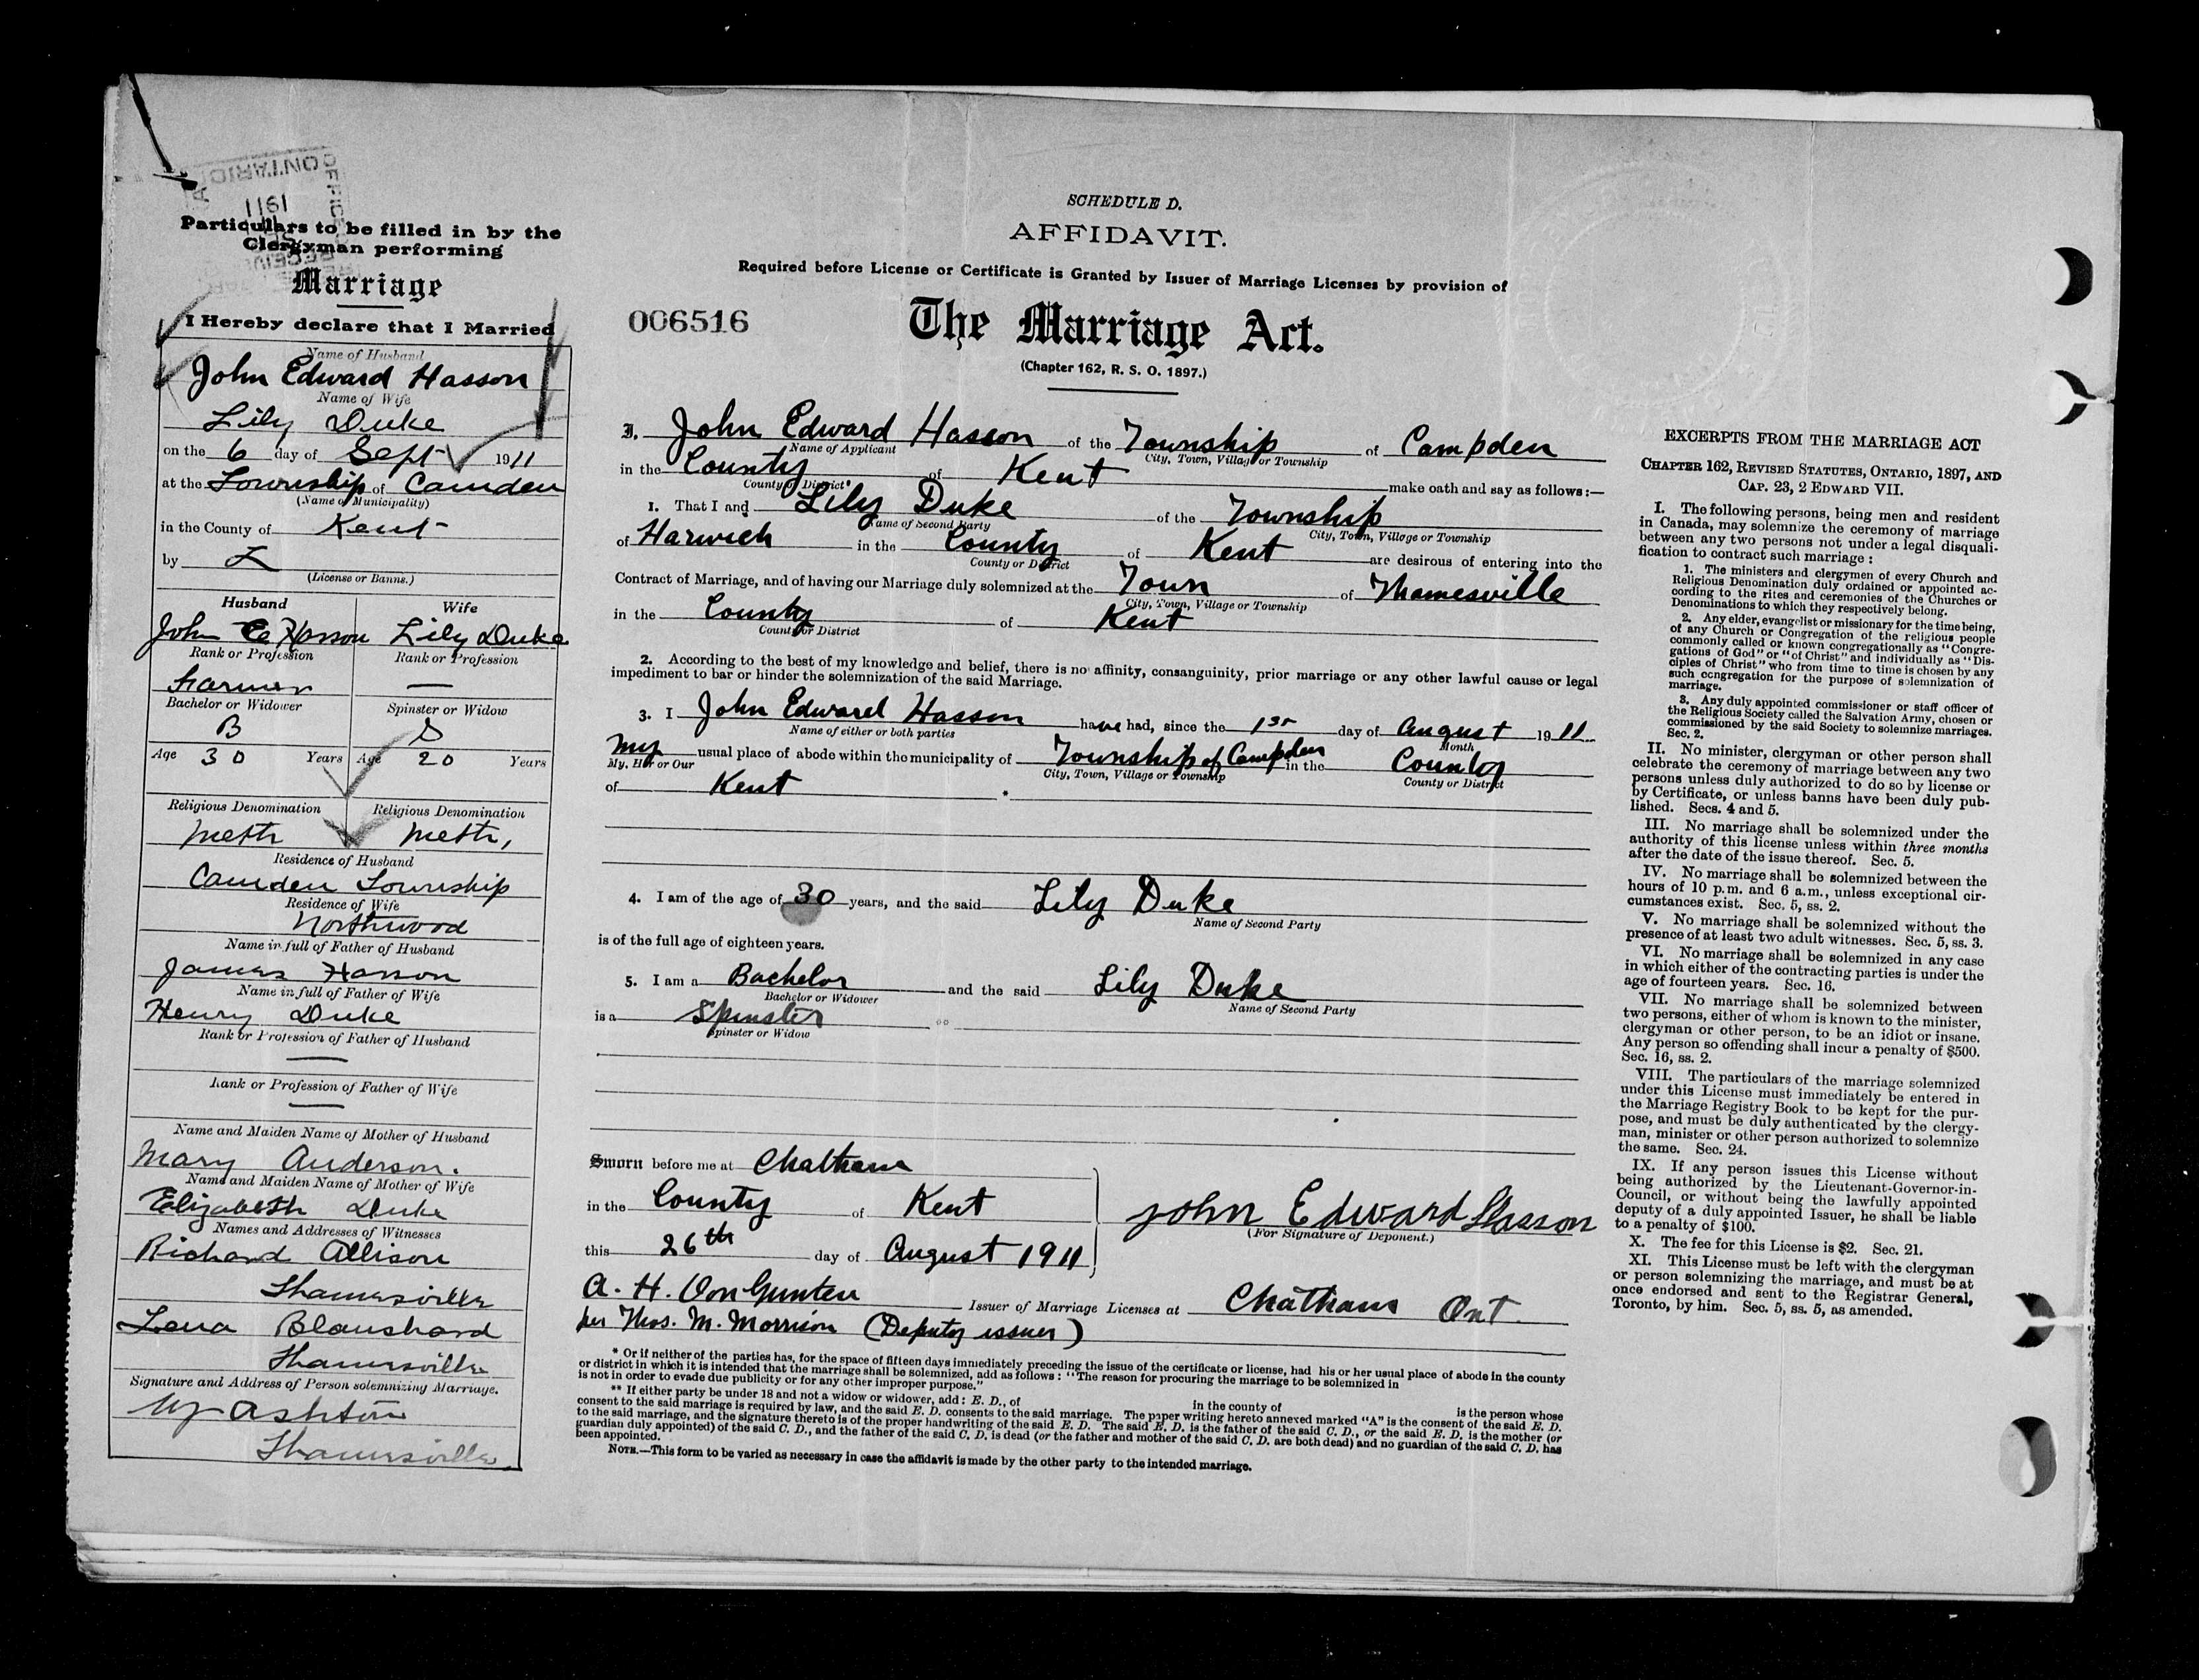 ONTARIO
OFFICE
1911
Particulars to be filled in by the
Clergyman performing
Marriage
I Hereby declare that I Married
Name of Husband
John Edward Hasson
Name of Wife
Lily Duke
on the 6 day of Sept 1911
at the Township of Camden
(Name of Municipality)
in the County of Kent
by L
(License or Banns.)
Husband Wife
John E Hasson Lily Duke
Rank or Profession Rank or Profession
Farmer —
Bachelor or Widower Spinster or Widow
B S
Age 30 Years Age 20 Years
Religious Denomination Religious Denomination
Meth Meth,
Residence of Husband
Camden Township
Residence of Wife
Northwood
Name in full of Father of Husband
James Hasson
Name in full of Father of Wife
Henry Duke
Rank or Profession of Father of Husband
—
Rank or Profession of Father of Wife
—
Name and Maiden Name of Mother of Husband
Mary Anderson.
Name and Maiden Name of Mother of Wife
Elizabeth Duke
Names and Addresses of Witnesses
Richard Allison
Thamesville
Lena Blanshard
Thamesville
Signature and Address of Person solemnizing Marriage.
Ashton
Thamesville
SCHEDULE D.
AFFIDAVIT.
Required before License or Certificate is Granted by Issuer of Marriage Licenses by provision of
006516 The Marriage Act.
(Chapter 162, R. S. O. 1897.)
I. John Edward Hasson of the Township of Campden
Name of Applicant City, Town, Village or Township
in the County of Kent make oath and say as follows:—
County or District
1. That I and Lily Duke of the Township
Name of Second Party City, Town, Village or Township
of Harwich in the County of Kent are desirous of entering into the
County or District
Contract of Marriage, and of having our Marriage duly solemnized at the Town of Thamesville
City, Town, Village or Township
in the County of Kent
County or District
2. According to the best of my knowledge and belief, there is no affinity, consanguinity, prior marriage or any other lawful cause or legal
impediment to bar or hinder the solemnization of the said Marriage.
3. I John Edward Hasson have had, since the 1st day of August 1911
Name of either or both parties Month
My usual place of abode within the municipality of Township of Campden in the County
My, Her or Our City, Town, Village or Township County or District
of Kent *
4. I am of the age of 30 years, and the said Lily Duke
Name of Second Party
is of the full age of eighteen years.
5. I am a Bachelor and the said Lily Duke
Bachelor or Widower Name of Second Party
is a Spinster **
Spinster or Widow
Sworn before me at Chatham
in the County of Kent
John Edward Hasson
(For Signature of Deponent.)
this 26th day of August 1911
A. H. Von Gunten Issuer of Marriage Licenses at Chatham Ont.
per Thos. M. Morrison (Deputy issuer)
* Or if neither of the parties has, for the space of fifteen days immediately preceding the issue of the certificate or license, had his or her usual place of abode in the county
or district in which it is intended that the marriage shall be solemnized, add as follows: "The reason for procuring the marriage to be solemnized in
is not in order to evade due publicity or for any other improper purpose."
** If either party be under 18 and not a widow or widower, add: E. D., of in the county of is the person whose
consent to the said marriage is required by law, and the said E. D. consents to the said marriage. The paper writing hereto annexed marked "A" is the consent of the said E. D.
to the said marriage, and the signature thereto is of the proper handwriting of the said E. D. The said E. D. is the father of the said C. D., or the said E. D. is the mother (or
guardian duly appointed) of the said C. D., and the father of the said C. D. is dead (or the father and mother of the said C. D. are both dead) and no guardian of the said C. D. has
been appointed.
NOTE.—This form to be varied as necessary in case the affidavit is made by the other party to the intended marriage.
EXCERPTS FROM THE MARRIAGE ACT
CHAPTER 162, REVISED STATUTES, ONTARIO, 1897, AND
CAP. 23, 2 EDWARD VII.
I. The following persons, being men and resident
in Canada, may solemnize the ceremony of marriage
between any two persons not under a legal disquali-
fication to contract such marriage:
1. The ministers and clergymen of every Church and
Religious Denomination duly ordained or appointed ac-
cording to the rites and ceremonies of the Churches or
Denominations to which they respectively belong.
2. Any elder, evangelist or missionary for the time being,
of any Church or Congregation of the religious people
commonly called or known congregationally as "Congre-
gations of God" or "of Christ" and individually as "Dis-
ciples of Christ" who from time to time is chosen by any
such congregation for the purpose of solemnization of
marriage.
3. Any duly appointed commissioner or staff officer of
the Religious Society called the Salvation Army, chosen or
commissioned by the said Society to solemnize marriages.
Sec. 2.
II. No minister, clergyman or other person shall
celebrate the ceremony of marriage between any two
persons unless duly authorized to do so by license or
by Certificate, or unless banns have been duly pub-
lished. Secs. 4 and 5.
III. No marriage shall be solemnized under the
authority of this license unless within three months
after the date of the issue thereof. Sec. 5.
IV. No marriage shall be solemnized between the
hours of 10 p.m. and 6 a.m., unless exceptional cir-
cumstances exist. Sec. 5, ss. 2.
V. No marriage shall be solemnized without the
presence of at least two adult witnesses. Sec. 5, ss. 3.
VI. No marriage shall be solemnized in any case
in which either of the contracting parties is under the
age of fourteen years. Sec. 16.
VII. No marriage shall be solemnized between
two persons, either of whom is known to the minister,
clergyman or other person, to be an idiot or insane.
Any person so offending shall incur a penalty of $500.
Sec. 16, ss. 2.
VIII. The particulars of the marriage solemnized
under this License must immediately be entered in
the Marriage Registry Book to be kept for the pur-
pose, and must be duly authenticated by the clergy-
man, minister or other person authorized to solemnize
the same. Sec. 24.
IX. If any person issues this License without
being authorized by the Lieutenant-Governor-in-
Council, or without being the lawfully appointed
deputy of a duly appointed Issuer, he shall be liable
to a penalty of $100.
X. The fee for this License is $2. Sec. 21.
XI. This License must be left with the clergyman
or person solemnizing the marriage, and must be at
once endorsed and sent to the Registrar General,
Toronto, by him. Sec. 5, ss. 5, as amended.